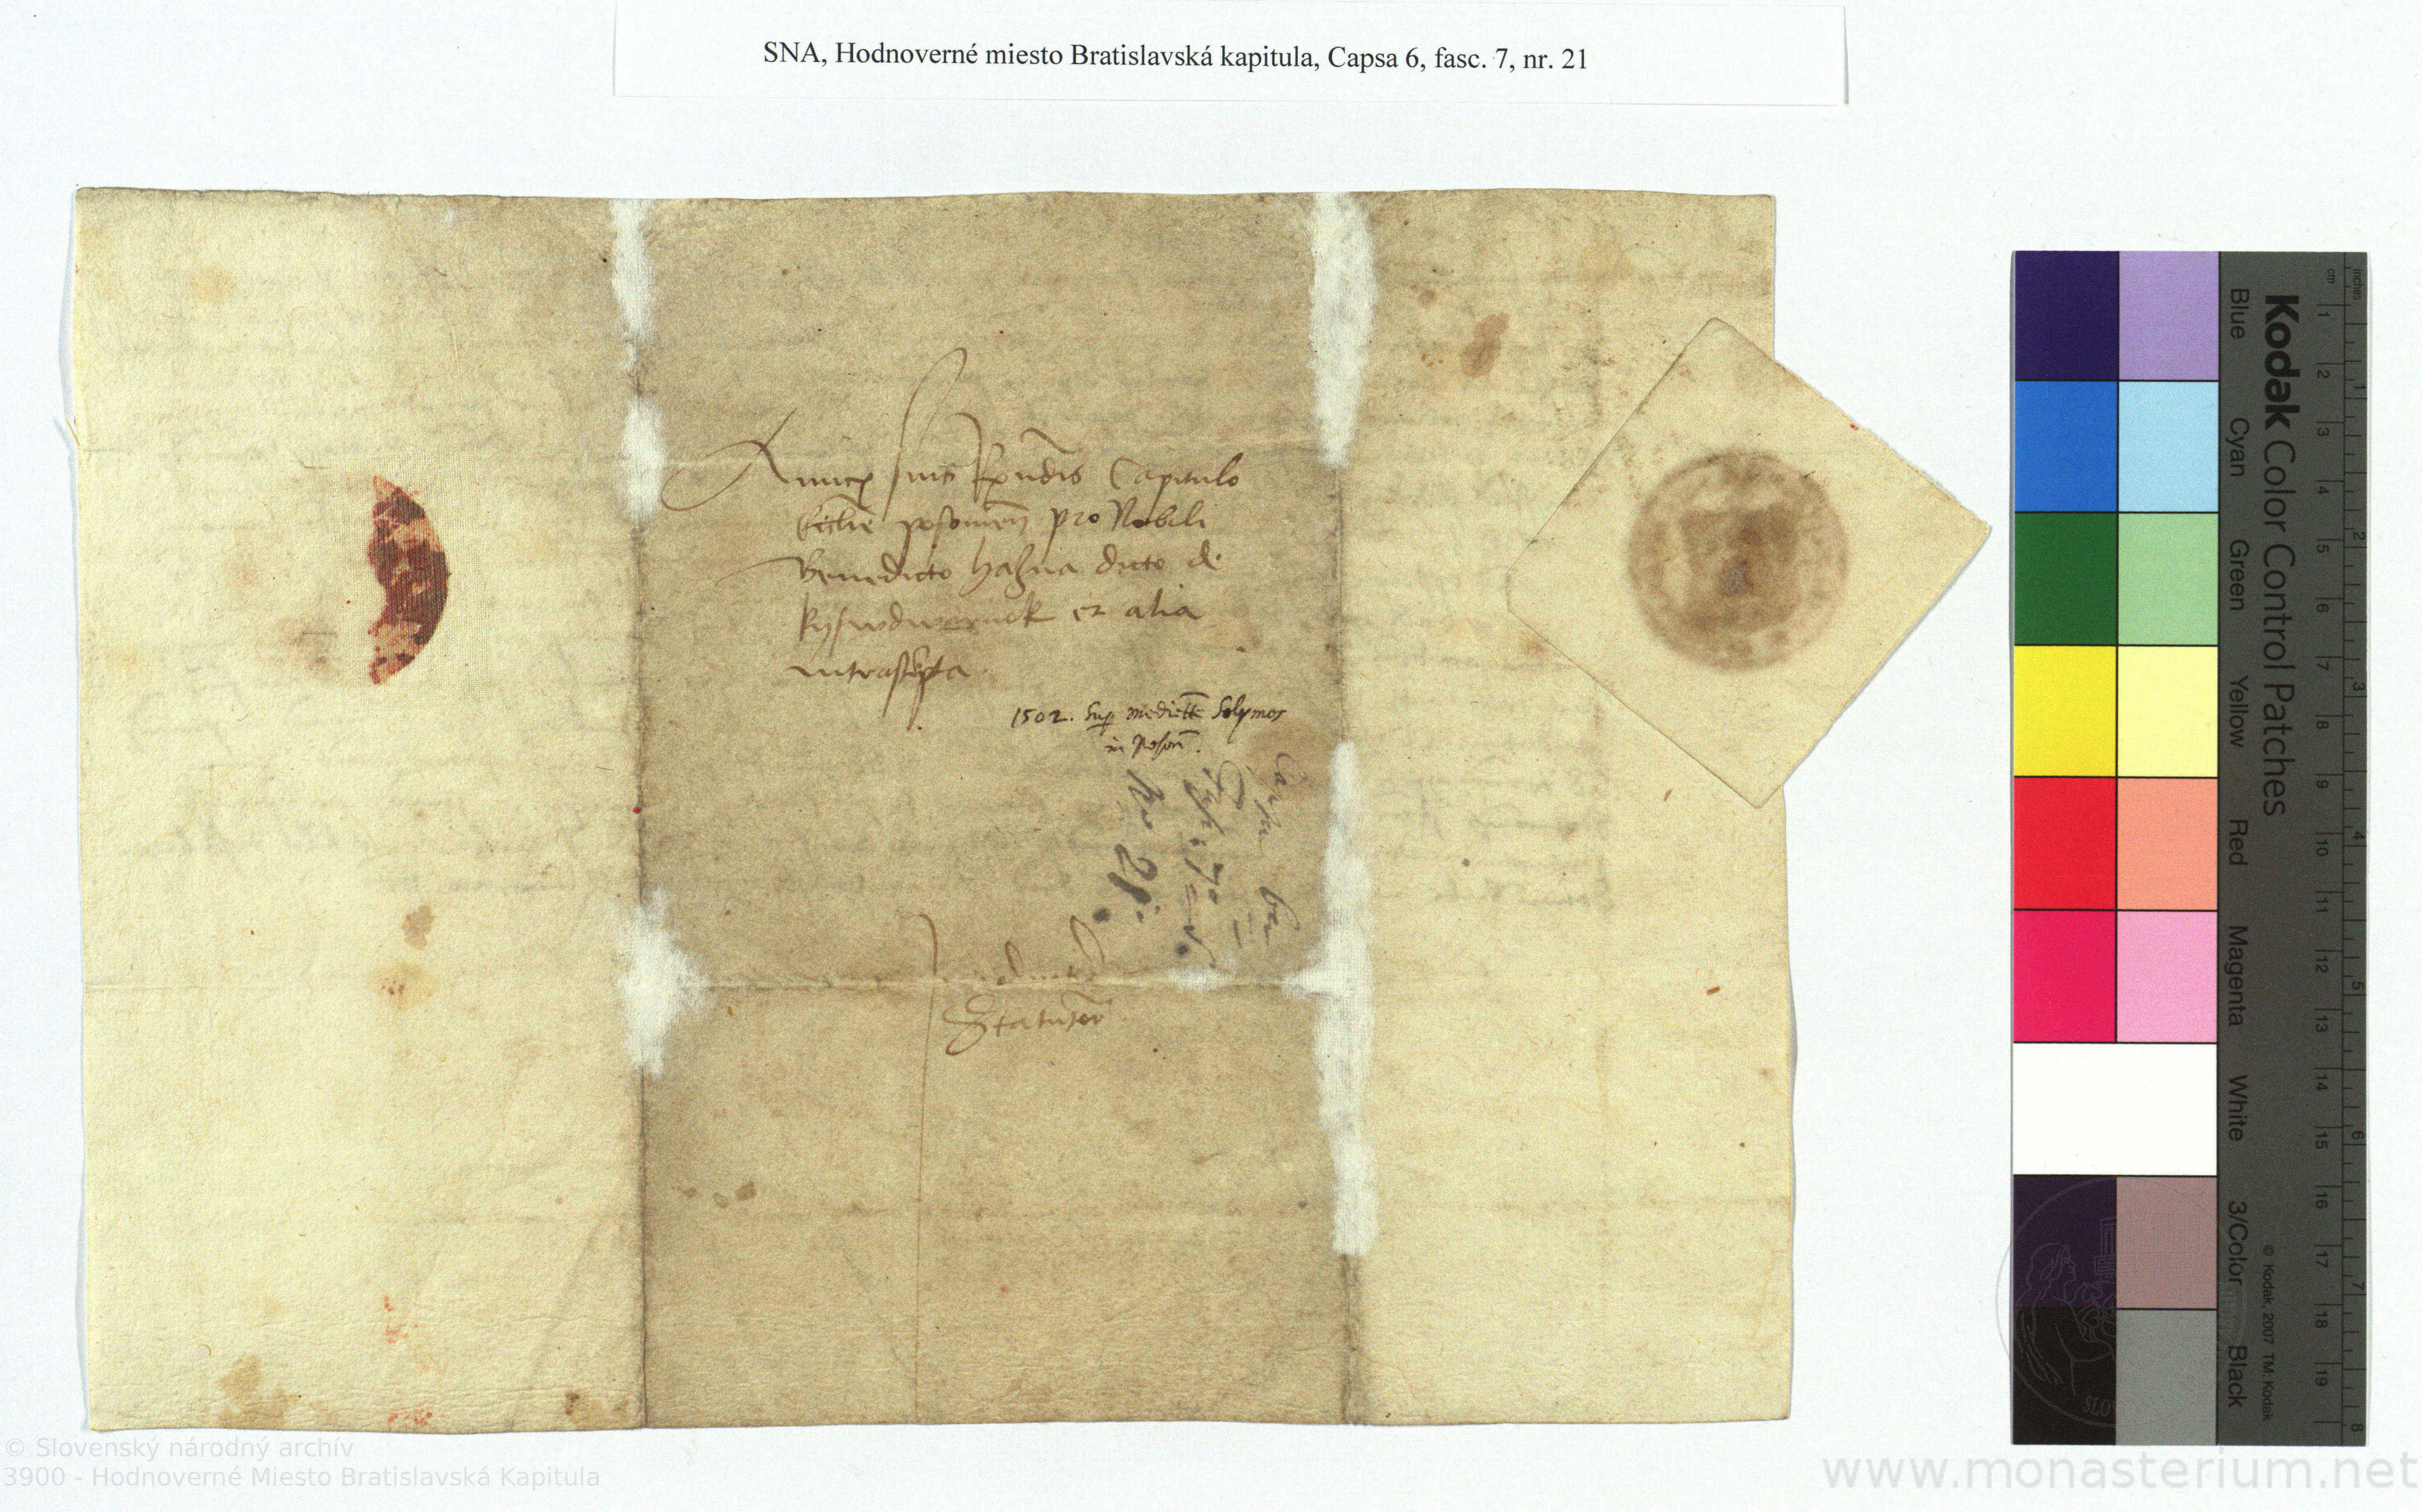 SNA, Hodnoverné miesto Bratislavská kapitula, Capsa 6, fasc. 7, nr. 21
Amicis suis Rndis Capitulo
Ecclie posonien pro Nobili
Benedicto hazna dicto de
kyswdwarnok et alia
intrascpta
1502. Sup mediette Solymos
in Poson.
Capsa 6a
Fasc. 7.
Nro 21.
Statutor
Kodak Color Control Patches
Blue Cyan Green Yellow Red Magenta White 3/Color Black
© Kodak, 2007 TM: Kodak
inches 1 2 3 4 5 6 7 8
cm 1 2 3 4 5 6 7 8 9 10 11 12 13 14 15 16 17 18 19
SLO
© Slovenský národný archív
3900 - Hodnoverné Miesto Bratislavská Kapitula
www.monasterium.net